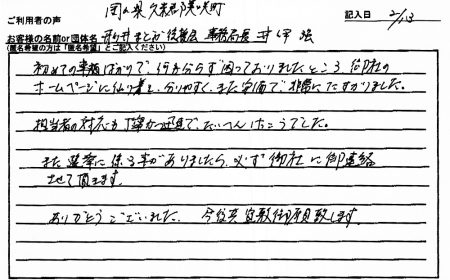 ご利用者の声
岡山県久米郡美咲町
記入日 2/13
お客様の名前or団体名 後援会 事務局長
(匿名希望の方は「匿名希望」とご記入ください)
初めての事柄ばかりで、何も分らず困っておりましたところ、御社の
ホームページに辿り着き、分りやすく、また安価で、非常にたすかりました。
担当者の対応も丁寧かつ迅速で、たいへんけっこうでした。
また選挙に係る事がありましたら、必ず御社に御連絡
させて頂きます。
ありがとうございました。 今後共宜敷御願致します。